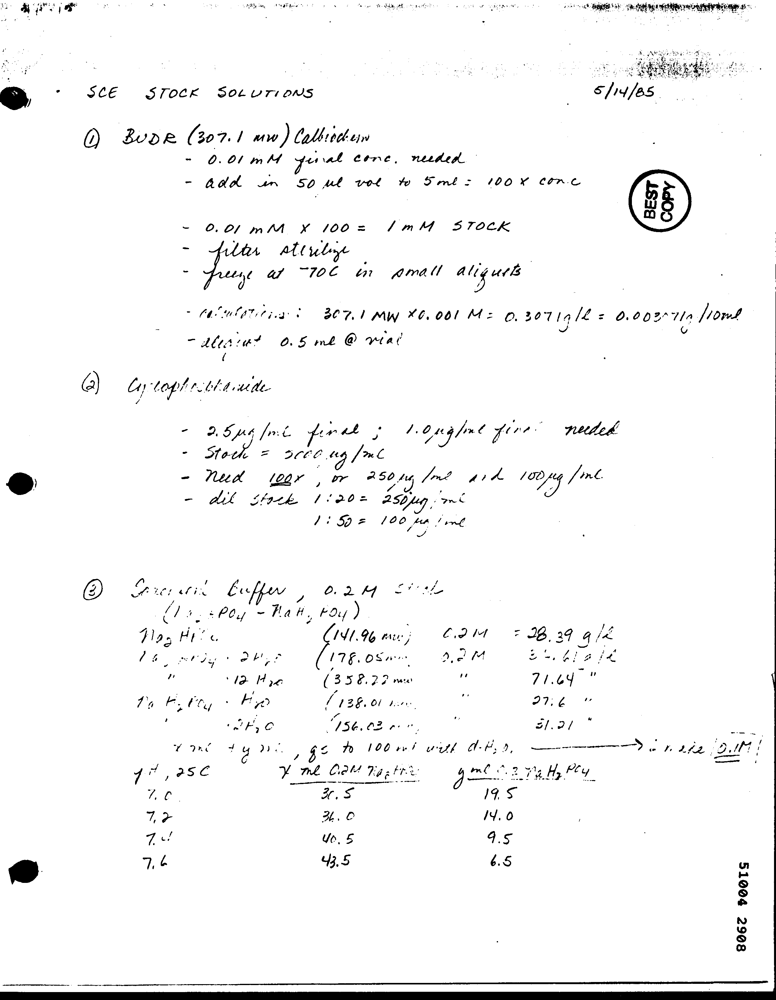 SCE STOCK SOLUTIONS 5/14/85
① BUDR (307.1 mw) Calbiochem
- 0.01 mM final conc. needed
- add in 50 µl vol to 5 ml = 100 X conc
BEST COPY
- 0.01 mM X 100 = 1 mM STOCK
- filter sterilize
- freeze at -70C in small aliquots
- calculations: 307.1 MW X 0.001 M = 0.3071g/l = 0.003071g/10ml
- aliquot 0.5 ml @ vial
② Cyclophosphamide
- 2.5 µg/ml final ; 1.0 µg/ml final needed
- Stock = 5000 µg/ml
- need 100X, or 250 µg/ml and 100 µg/ml
- dil stock 1:20 = 250 µg/ml
1:50 = 100 µg/ml
③ Buffer, 0.2 M
PO4 - NaH2PO4)
Na2HPO4 (141.96 mw) 0.2 M = 28.39 g/l
· 2H2O (178.05 mw 0.2M g/l
" · 12 H2O (358.22 mw " 71.64 "
NaH2PO4 · H2O (138.01 " 27.6 "
" · 2H2O (156.03 " 31.21 "
x ml + y ml, qs to 100 ml with d.H2O. → to make 0.1M
pH, 25C X ml 0.2M Na2HPO4 y ml 0.2 NaH2PO4
7.0 30.5 19.5
7.2 36.0 14.0
7.4 40.5 9.5
7.6 43.5 6.5
51004 2908